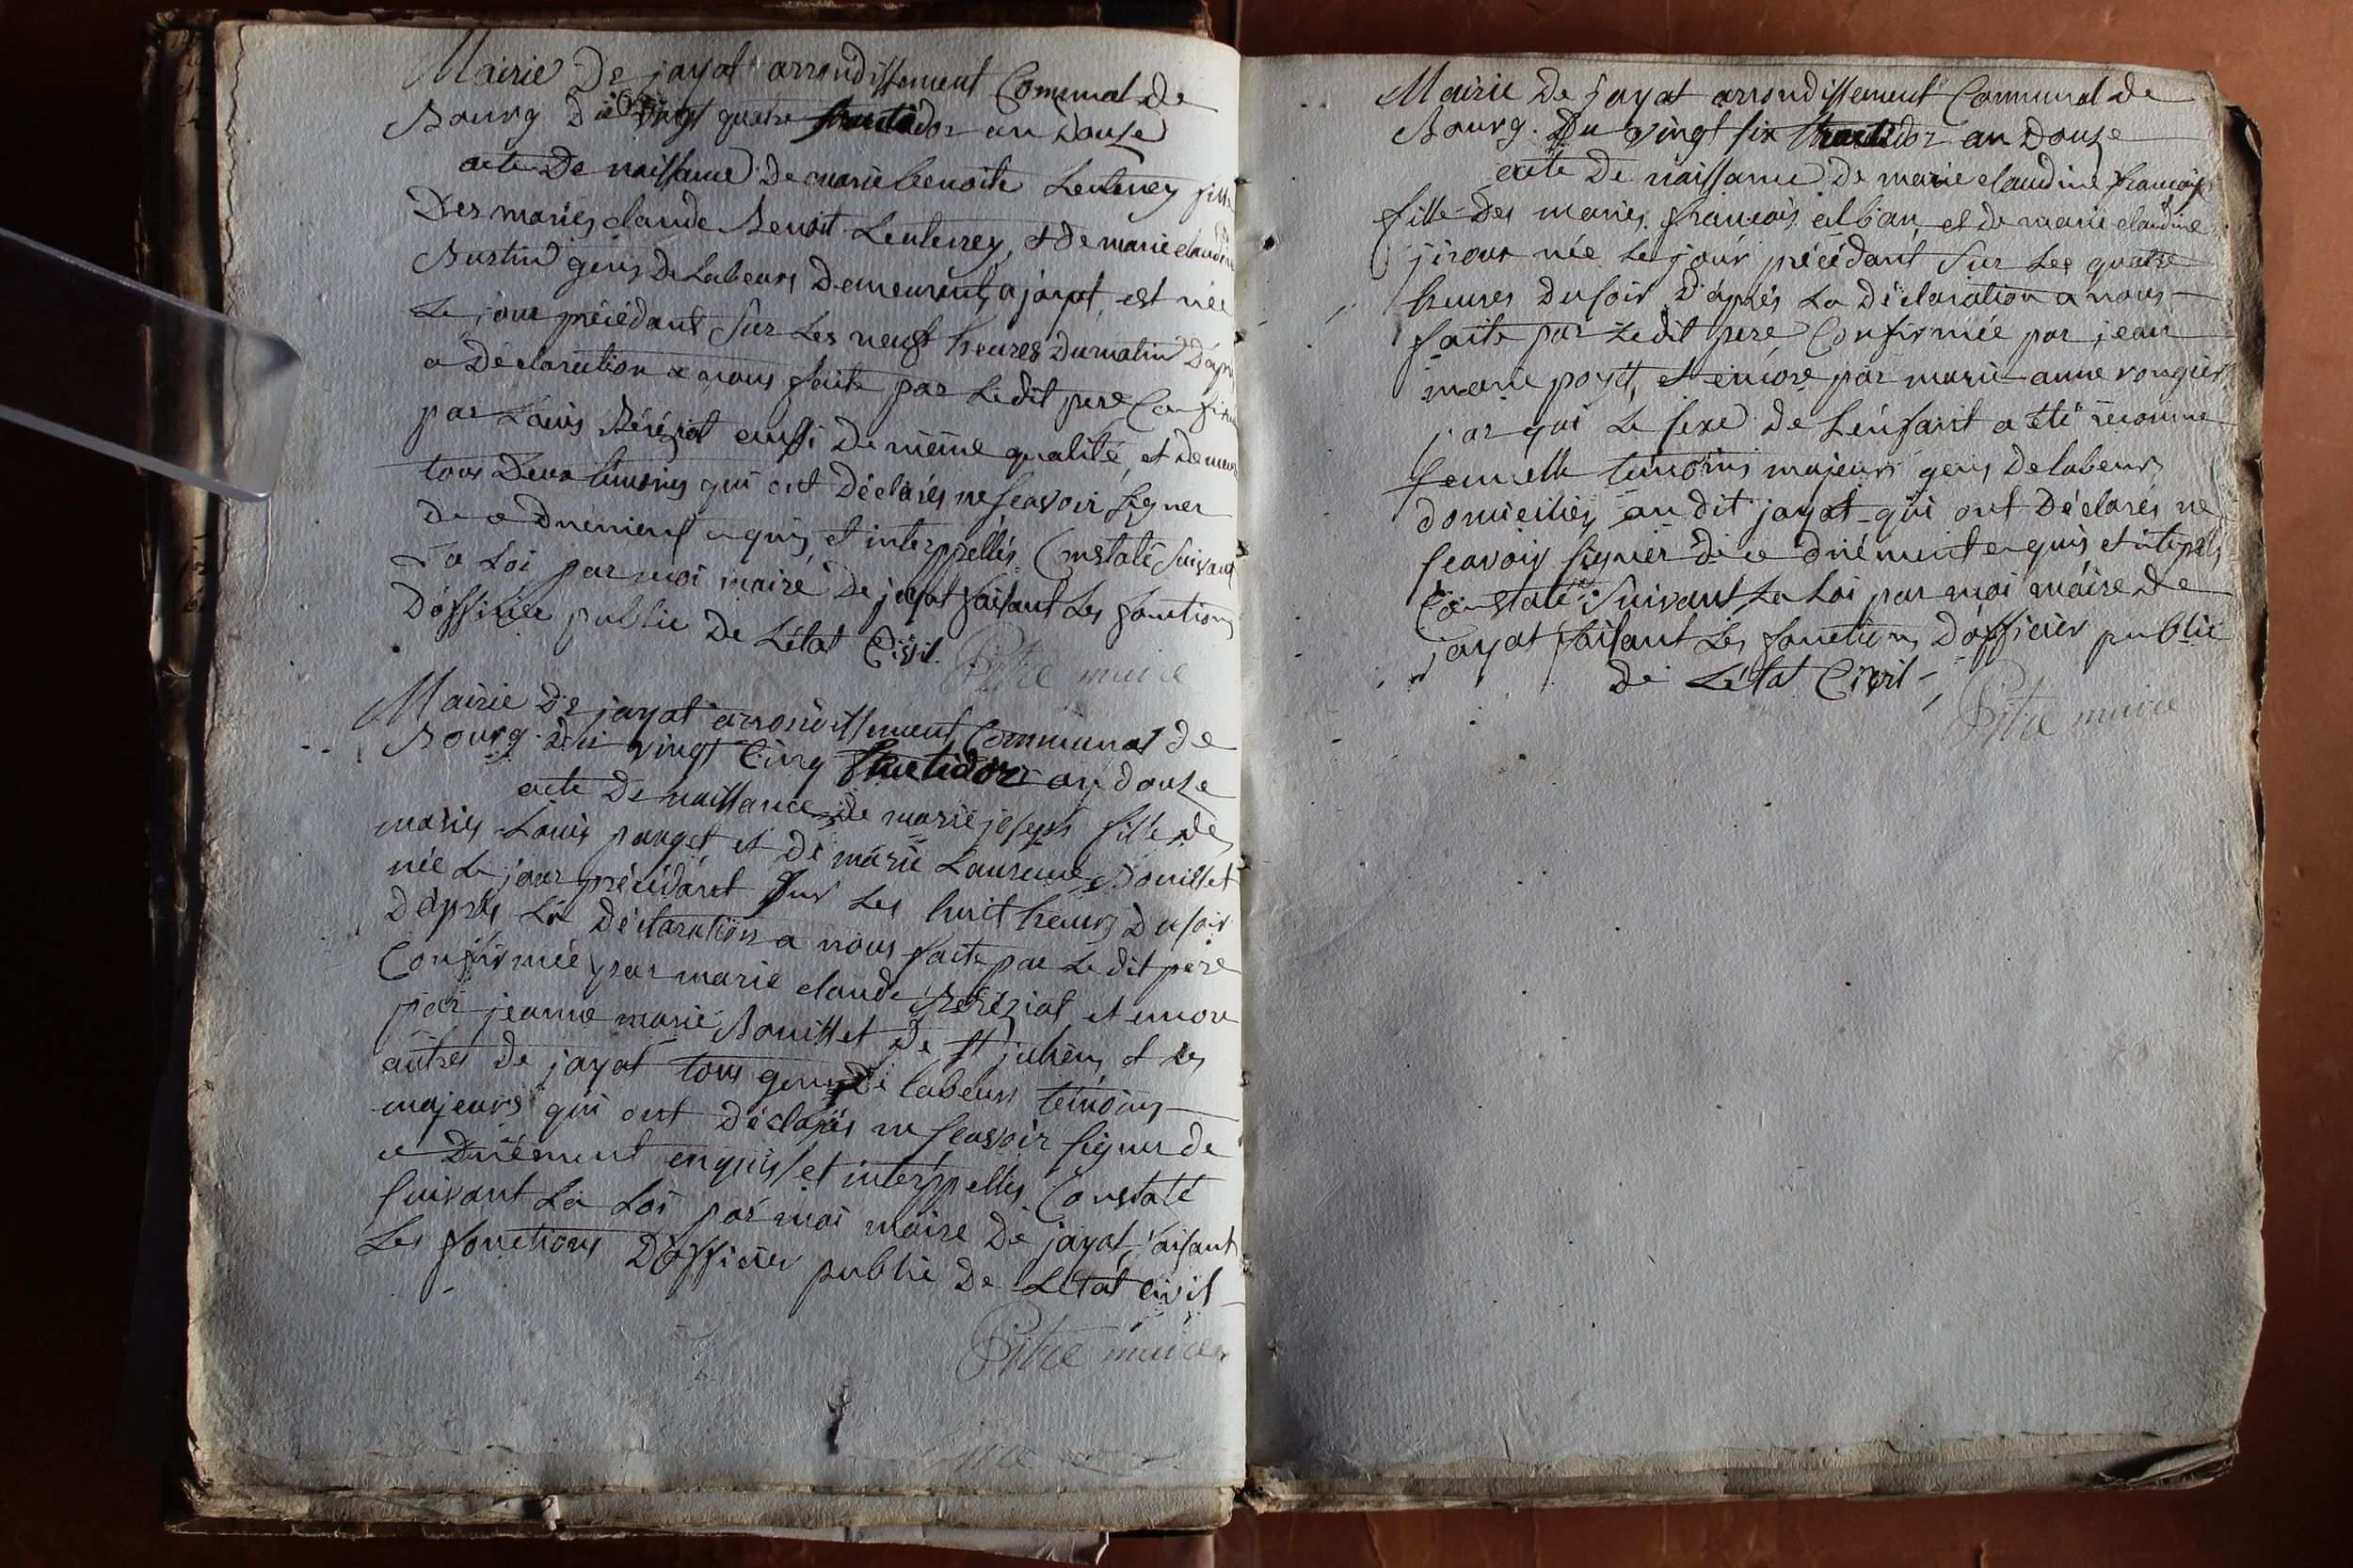 Mairie De jayat arrondissement Communal de
Bourg Du vingt quatre fructidor an Douze
acte De naissance De marie benoite Leuleney fille
Des mariés claude Benoit Leuleney, et de marie claudine
gens De Labeurs Demeurants a jayat, est née
Le jour précédant Sur Les neuf heures Du matin D'apr
a Déclaration a nous faite par Ledit pere Confirm
par Louis Béréziat aussi De même qualité, et Demeur
tous Deux témoins qui ont Déclarés ne scavoir signer
De ce Dnëment enquis, et interppellés. Constaté Suivant
La Loi par moi maire De jayat faisant Les fonctions
D'officier public De L'état Civil.
Pitre maire
Mairie De jayat arrondissement Communal de
Bourg. du vingt Cinq fructidor an douze
acte De naissance de marie joseph fille des
mariés Louis pauget et De marie Laurence Bouillet
née Le jour précédant Sur Les huit heures Du soir
D'après La Déclaration a nous faite par Le dit père
Confirmée par marie claude Béréziat et encore
par jeanne marie Bouillet De St julien, et Les
autres De jayat tous gens De labeurs témoins
majeurs qui ont Déclarés ne scavoir signer de
ce Dnëment enquis, et interppellés Constaté
suivant La Loi par moi maire De jayat, faisant
Les fonctions D'officier public De L'état civil
Pitre maire
Mairie De jayat arrondissement Communal de
Bourg. Du vingt six fructidor an Douze
acte De naissance De marie claudine françoise
fille Des mariés françois alban, et de marie claudine
jiroux née Le jour précédant Sur Les quatre
heures Du soir D'après La Déclaration a nous
faite par Ledit pere Confirmée par jean
marie poyet, et encore par marie anne rougier
par qui Le sexe De L'enfant a été reconnu
femelle témoins majeurs gens De labeurs
domiciliés au dit jayat qui ont Déclarés ne
scavoir signer De ce dnëment enquis et
Constaté Suivant La Loi par moi maire De
jayat faisant Les fonctions D'officier public
De L'état Civil
Pitre maire